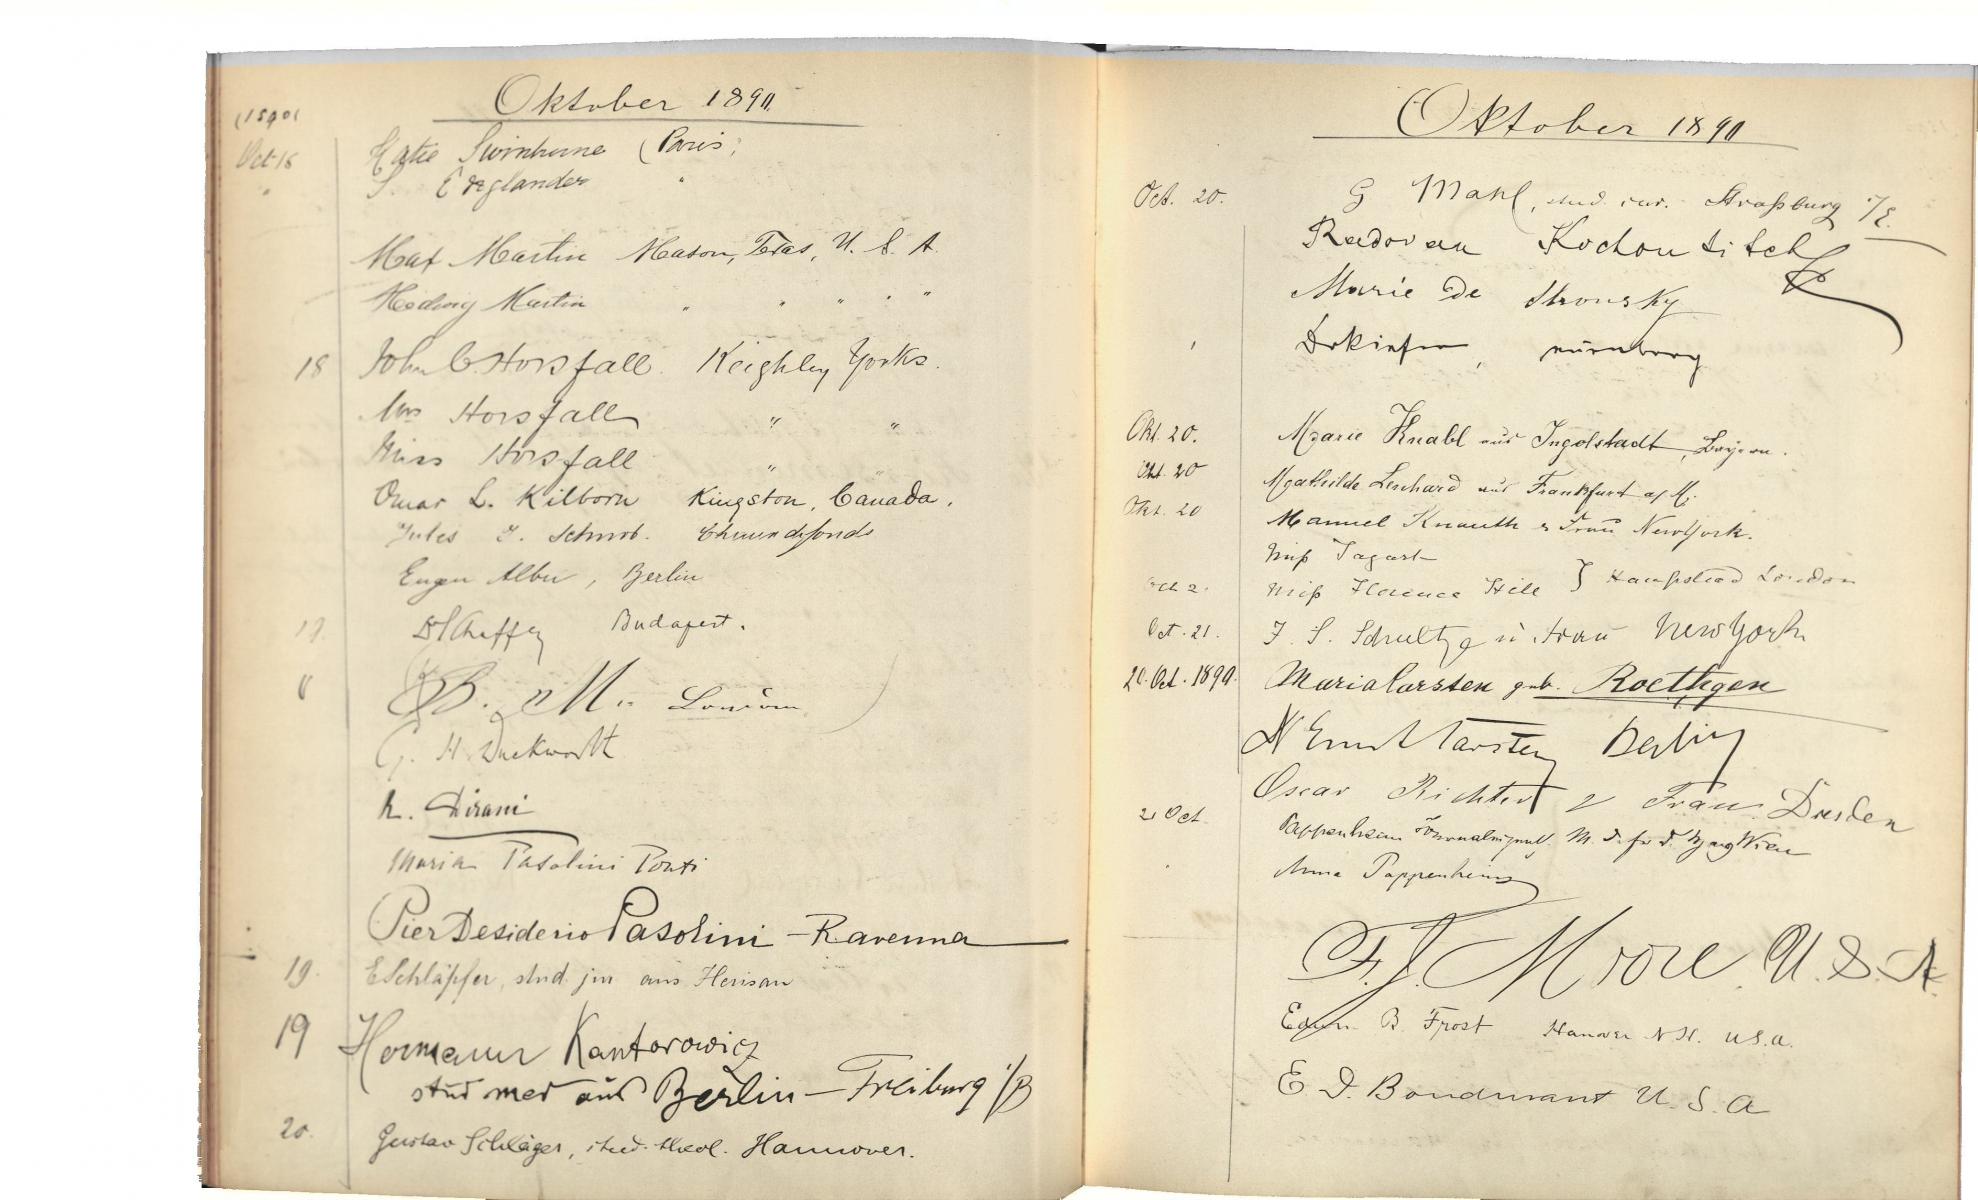 Oktober 1890.
(1890)
Oct 18 Katie Swinburne (Paris,
" S. Englander "
Max Martin Mason, Texas, U. S. A.
Hedwig Martin " " " " "
18 John C. Horsfall. Keighley Yorks.
Mrs Horsfall " "
Miss Horsfall " "
Omar L. Kilborn Kingston, Canada.
Jules J. Schwob. Chauxdefonds
Eugen Albu, Berlin
Budapest.
B. M. London
G. H. Duckworth
Maria Pasolini Ponti
Pier Desiderio Pasolini - Ravenna
19. E Schläpfer, stud. jur aus Herisau
19 Hermann Kantorowicz
stud med aus Berlin - Freiburg i/B
20. Gustav Schläger, stud. theol. Hannover.
Oktober 1890
Oct. 20. G Mahl, stud. jur. Straßburg i/E.
Radovan Kochoutitch
Marie de Stronsky
nürnberg
Okt. 20. Marie Knabl aus Ingolstadt, Bayern.
Okt. 20 Mathilde Lenhard aus Frankfurt a/M.
Okt. 20 Manuel Knauth & Frau New York.
Miß Tagart
Miß Florence Hill } Hampstead London
Oct. 21. F. S. Schultze u Frau New York
20. Oct. 1890. Maria Carsten geb. Roethgen
Ernst Carsten Berlin
Oscar Richter & Frau Dresden
2 Oct Pappenheim Wien
Anna Pappenheim
F. J. Moore U. S. A.
Edwin B. Frost Hanover N.H. U.S.A.
E. D. Bondurant U. S. A